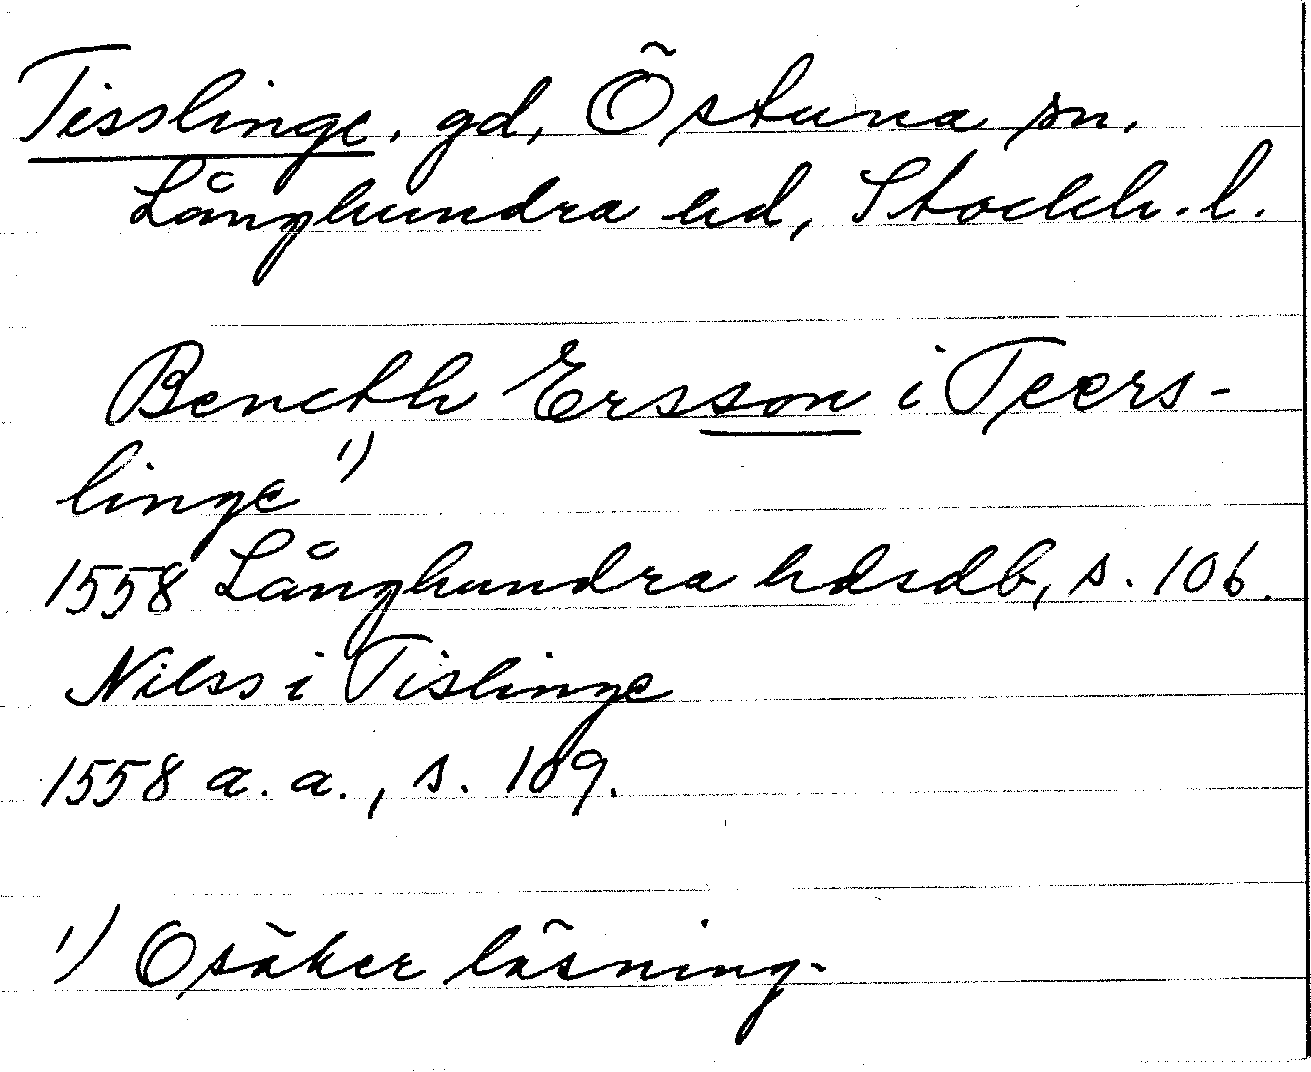 Tisslinge, gd, Östuna sn.
Långhundra hd, Stockh. l.
Bencth Ersson i Teers-
linge 1)
1558 Långhundra hdsdb, s. 106.
Nilss i Tislinge
1558 a. a., s. 109.
1) Osäker läsning.